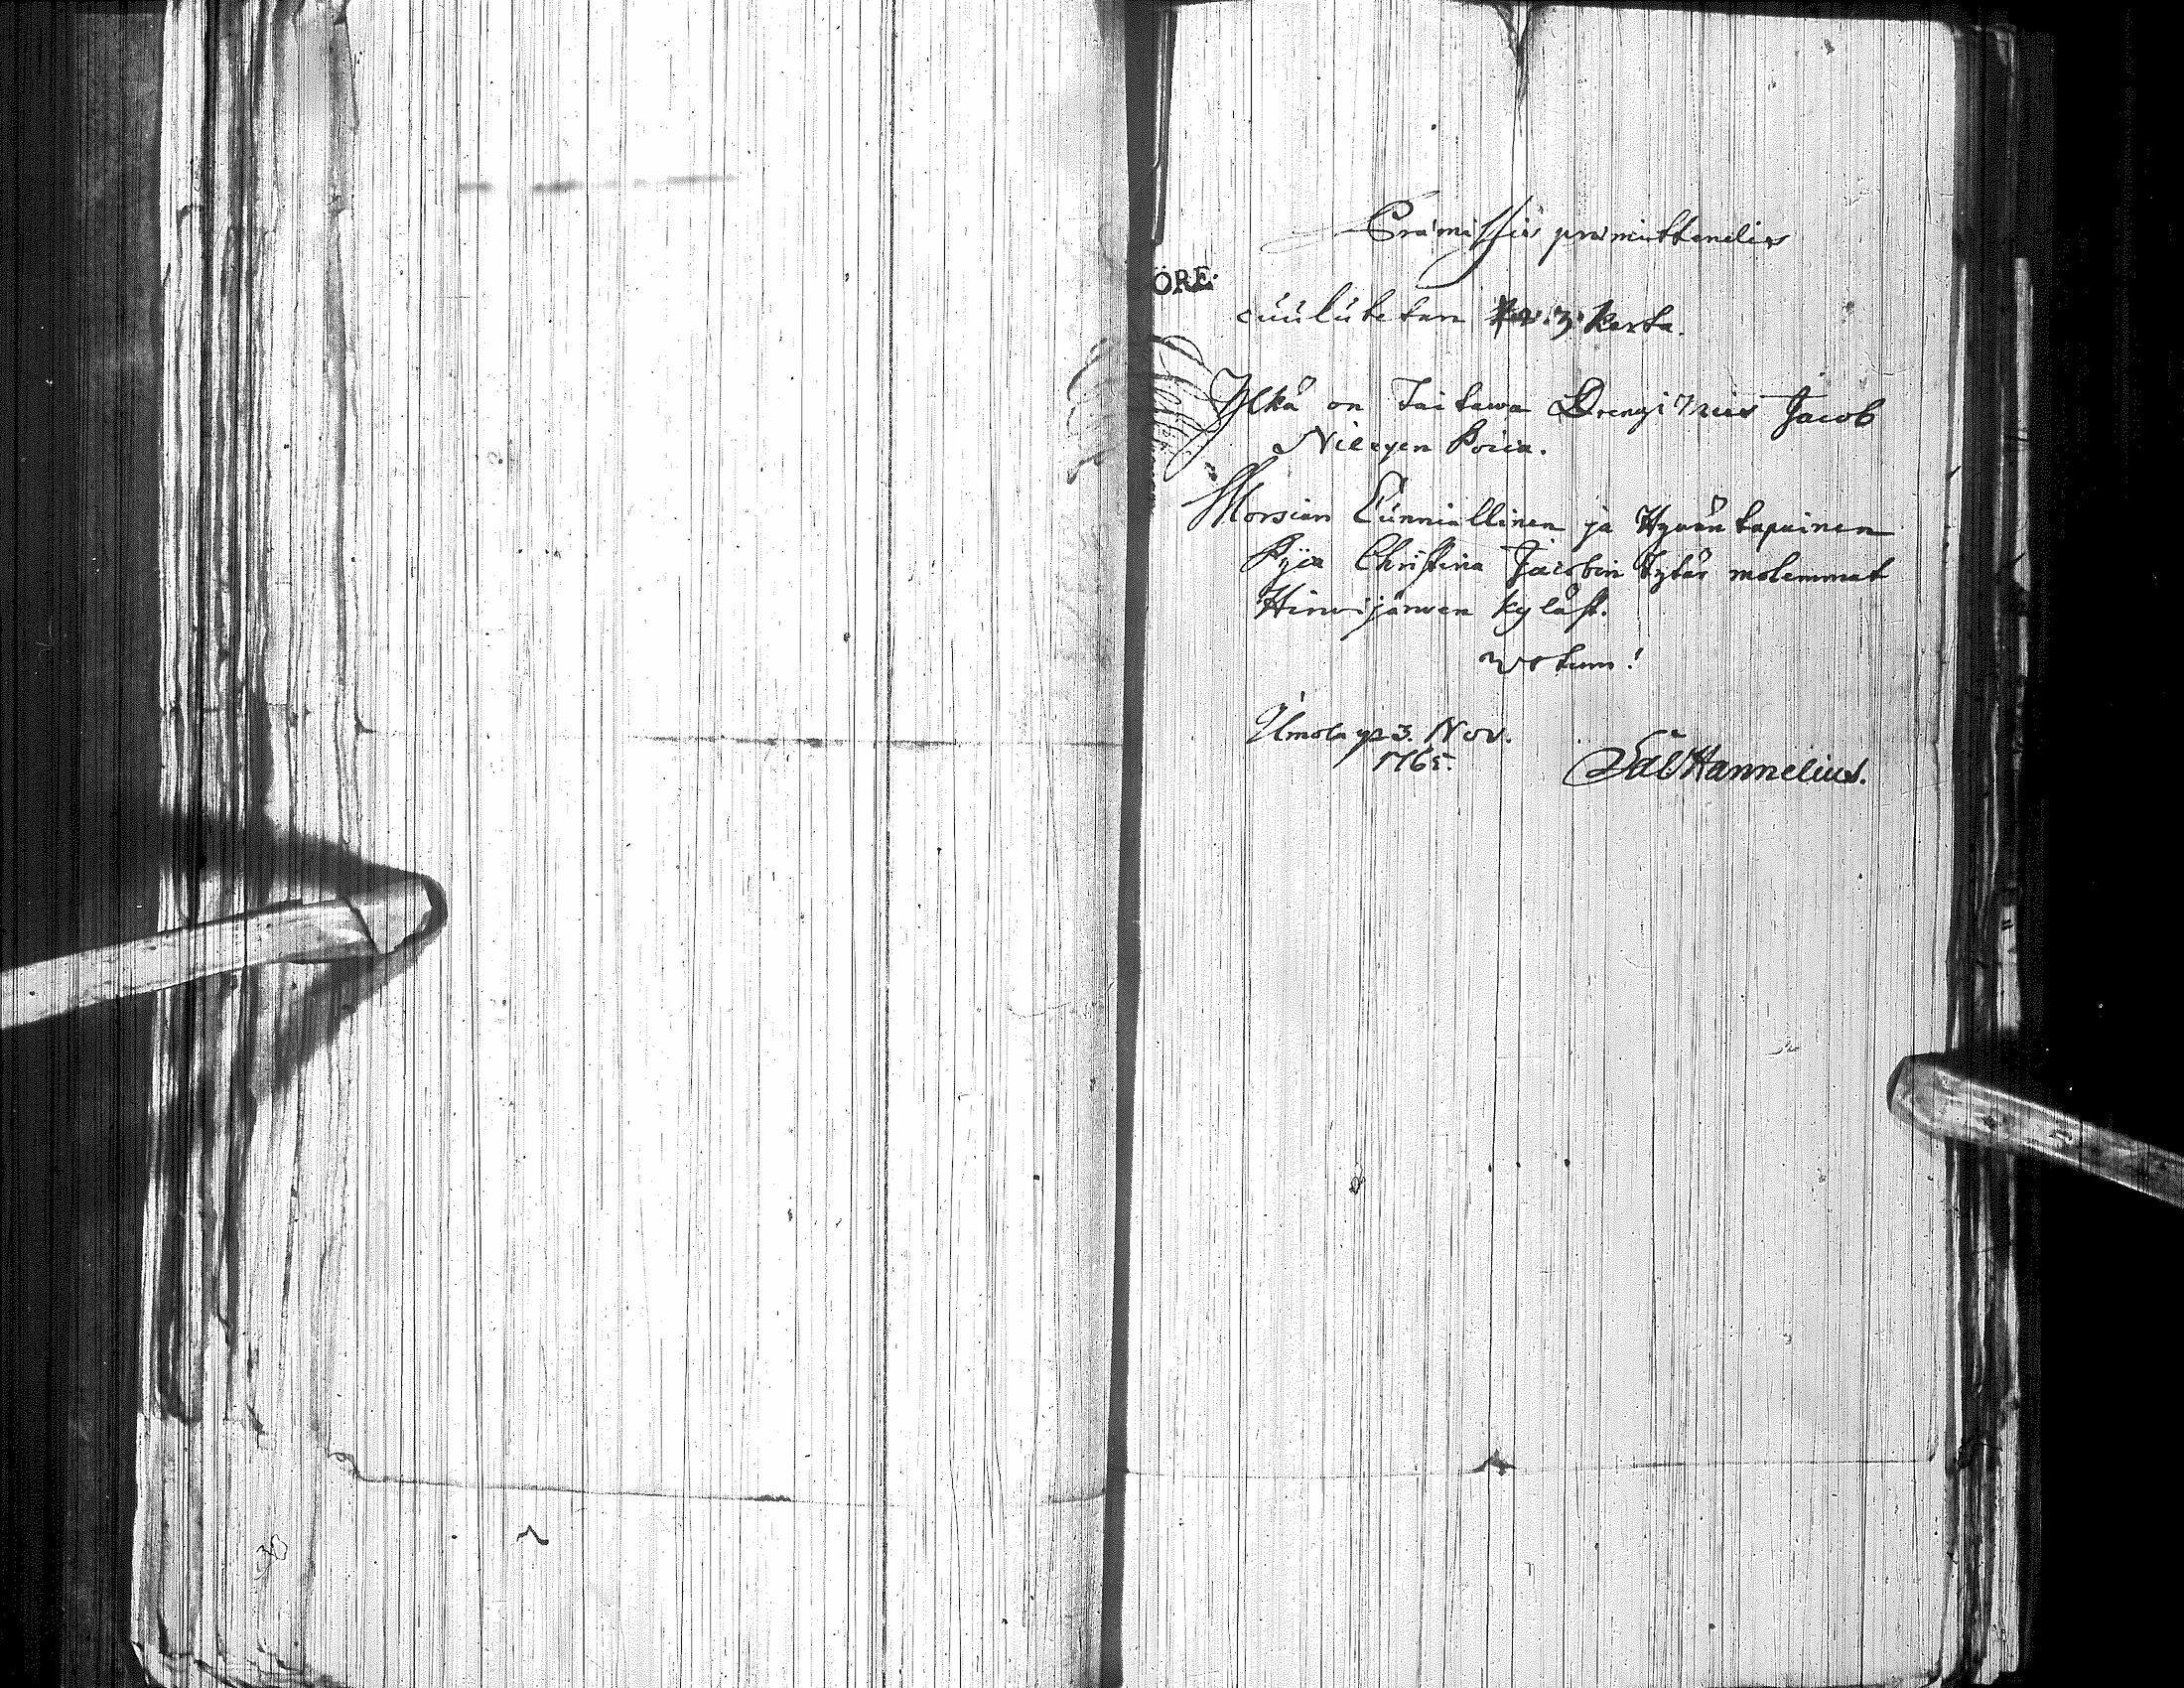 Præmissis præmittendis
ÖRE.
cuulutetan 1. 2. 3. Kerta.
Ylkä on Taitawa Drengi Jacob
Poica.
Morsian Cunniallinen ja Hywäntapainen
Pijca Christina Jacobin Tytär molemmat
Hirwijärwen Kyläst.
votum!
Umola 23. Nov.
1765.
Hannelius.